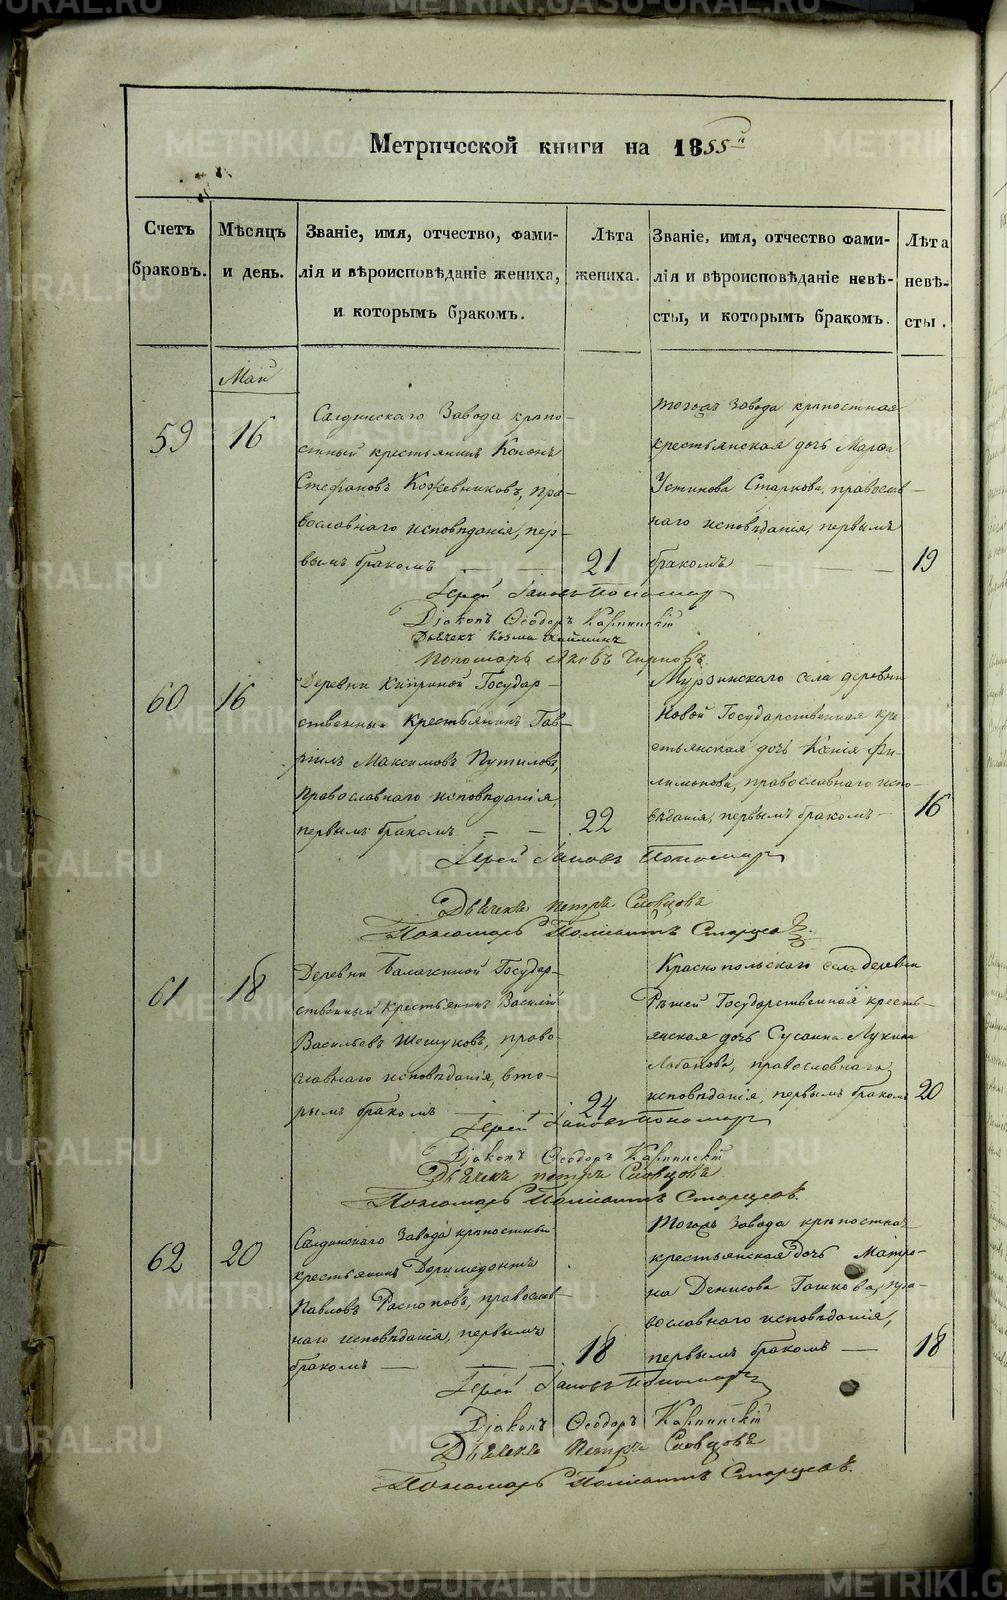 Метрической книги на 1855й
Счетъ браковъ.
Мѣсяцъ и день.
Званіе, имя, отчество, фами-
лія и вѣроисповѣданіе жениха,
и которымъ бракомъ.
Лѣта жениха.
Званіе, имя, отчество фами-
лія и вѣроисповѣданіе невѣ-
сты, и которымъ бракомъ.
Лѣта невѣ-
сты.
Маи
59
16
Салдинскаго Завода крѣпо-
стный крестьянинъ Кононъ
Стефановъ Кожевниковъ, пра-
вославнаго исповѣданія, пер-
вымъ бракомъ
21
тогожъ Завода крѣпостная
крестьянская дочь Марѳа
Устинова Старкова, православ-
наго исповѣданія, первымъ
бракомъ
19
Іерей Іаковъ Пономар
Діаконъ Ѳеодоръ Карпинскій
Дьячекъ Козма
Пономарь Яковъ
60
16
Деревни Киприной Государ-
ственный крестьянинъ Гав-
ріилъ Максимовъ Путиловъ,
православнаго исповѣданія,
первымъ бракомъ
22
Мурзинскаго села деревни
Новой Государственная кре
стьянская дочь Ксенія Фи-
лимонова, православнаго испо-
вѣданія, первымъ бракомъ
16
Іерей Іаковъ Пономар
Дьячекъ Петръ Словцовъ
Пономарь Полиектъ Старцевъ
61
18
Деревни Балакиной Государ-
ственный крестьянинъ Василій
Васильевъ Шешуковъ, право-
славнаго исповѣданія, вто-
рымъ бракомъ
24
Краснопольскаго села деревни
Рѣшей Государственная кресть-
янская дочь Сусанна Лукина
Лобанова, православнаго
исповѣданія, первымъ бракомъ
20
Іерей Іаковъ Пономар
Діаконъ Ѳеодоръ Карпинскій
Дьячекъ Петръ Словцовъ
Пономарь Полиектъ Старцевъ.
62
20
Салдинскаго Завода крѣпостный
крестьянинъ Доримедонтъ
Павловъ Распоповъ, православ-
наго исповѣданія, первымъ
бракомъ
18
тогожъ Завода крѣпостная
крестьянская дочь Матро-
на Денисова Гашкова, пра-
вославнаго исповѣданія,
первымъ бракомъ
18
Іерей Іаковъ Пономар
Діаконъ Ѳеодоръ Карпинскій
Дьячекъ Петръ Словцовъ
Пономарь Полиектъ Старцевъ.
METRIKI.GASO-URAL.RU